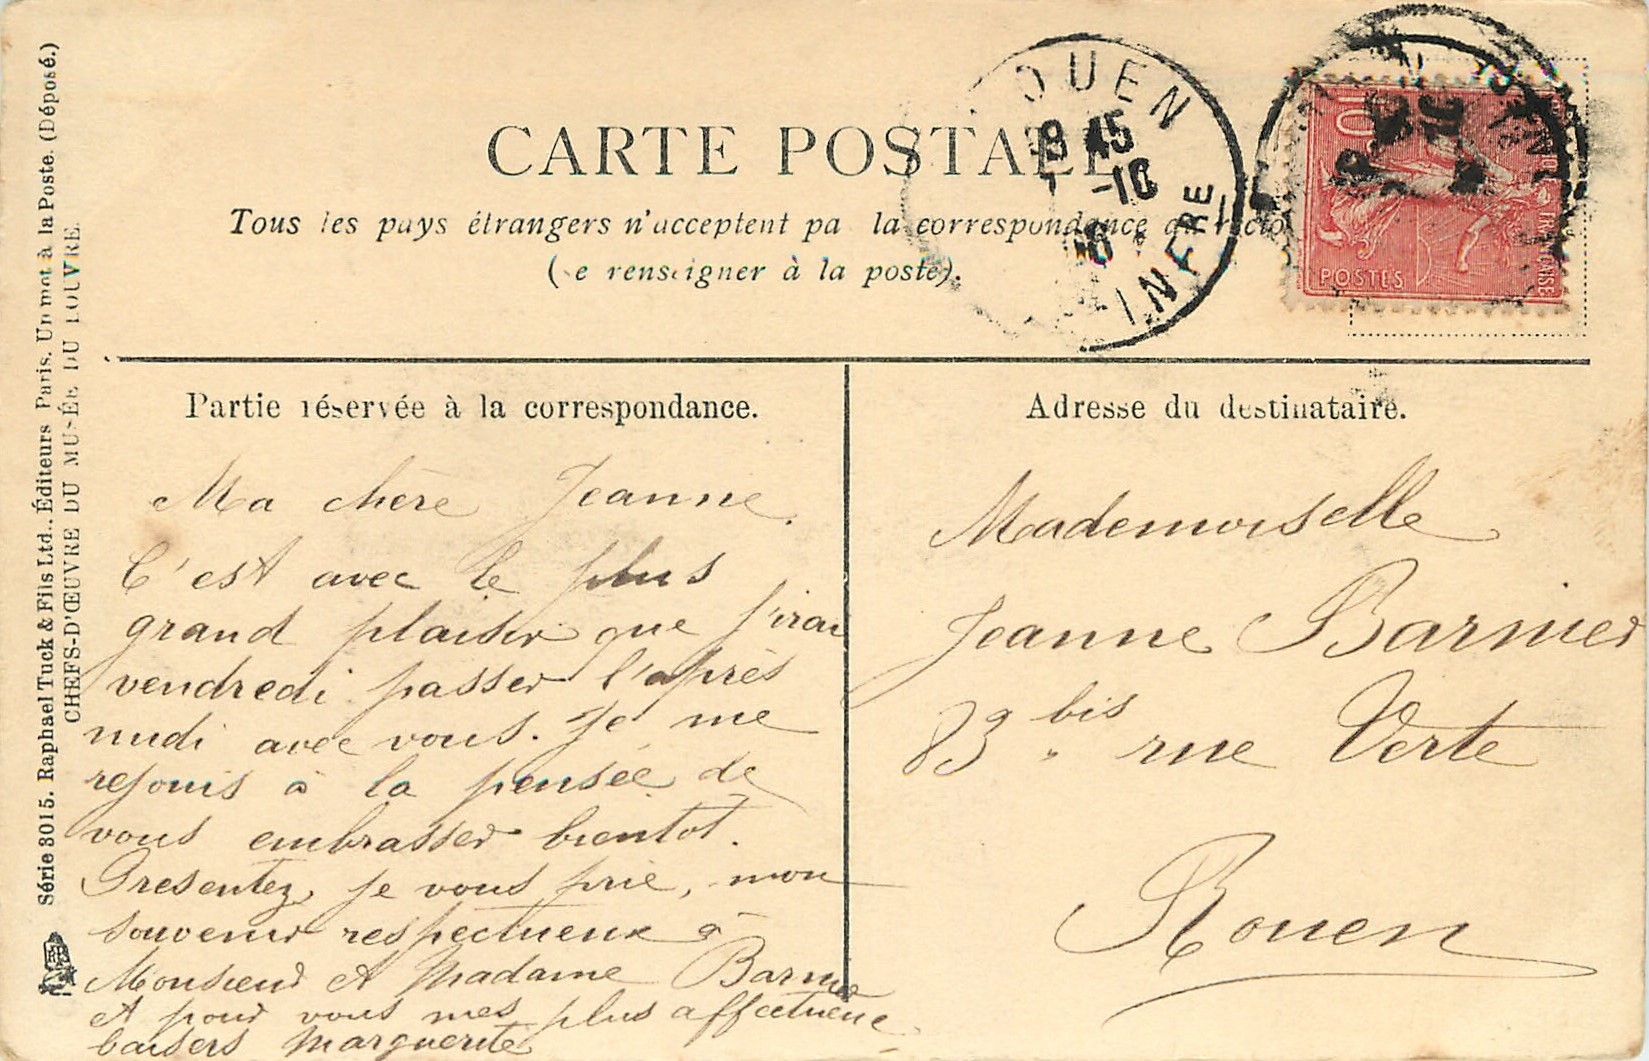 CARTE POSTALE
Tous les pays étrangers n'acceptent pa la correspondance au recto
(se renseigner à la poste).
ROUEN
8 45
-10
06
INFRE
10
POSTES
Partie réservée à la correspondance.
Ma chère Jeanne.
C'est avec le plus
grand plaisir que j'irai
vendredi passer l'après
midi avec vous. Je me
rejouis à la pensée de
vous embrasser bientot.
Presentez, je vous prie, mon
souvenir respectueux à
Monsieur et Madame Barnier
et pour vous mes plus affectueux
baisers Marguerite
Adresse du destinataire.
Mademoiselle
Jeanne Barnier
83 bis rue Verte
Rouen
Série 3015. Raphael Tuck & Fils Ltd., Éditeurs Paris. Un mot à la Poste. (Déposé.)
CHEFS-D'ŒUVRE DU MUSÉE DU LOUVRE.